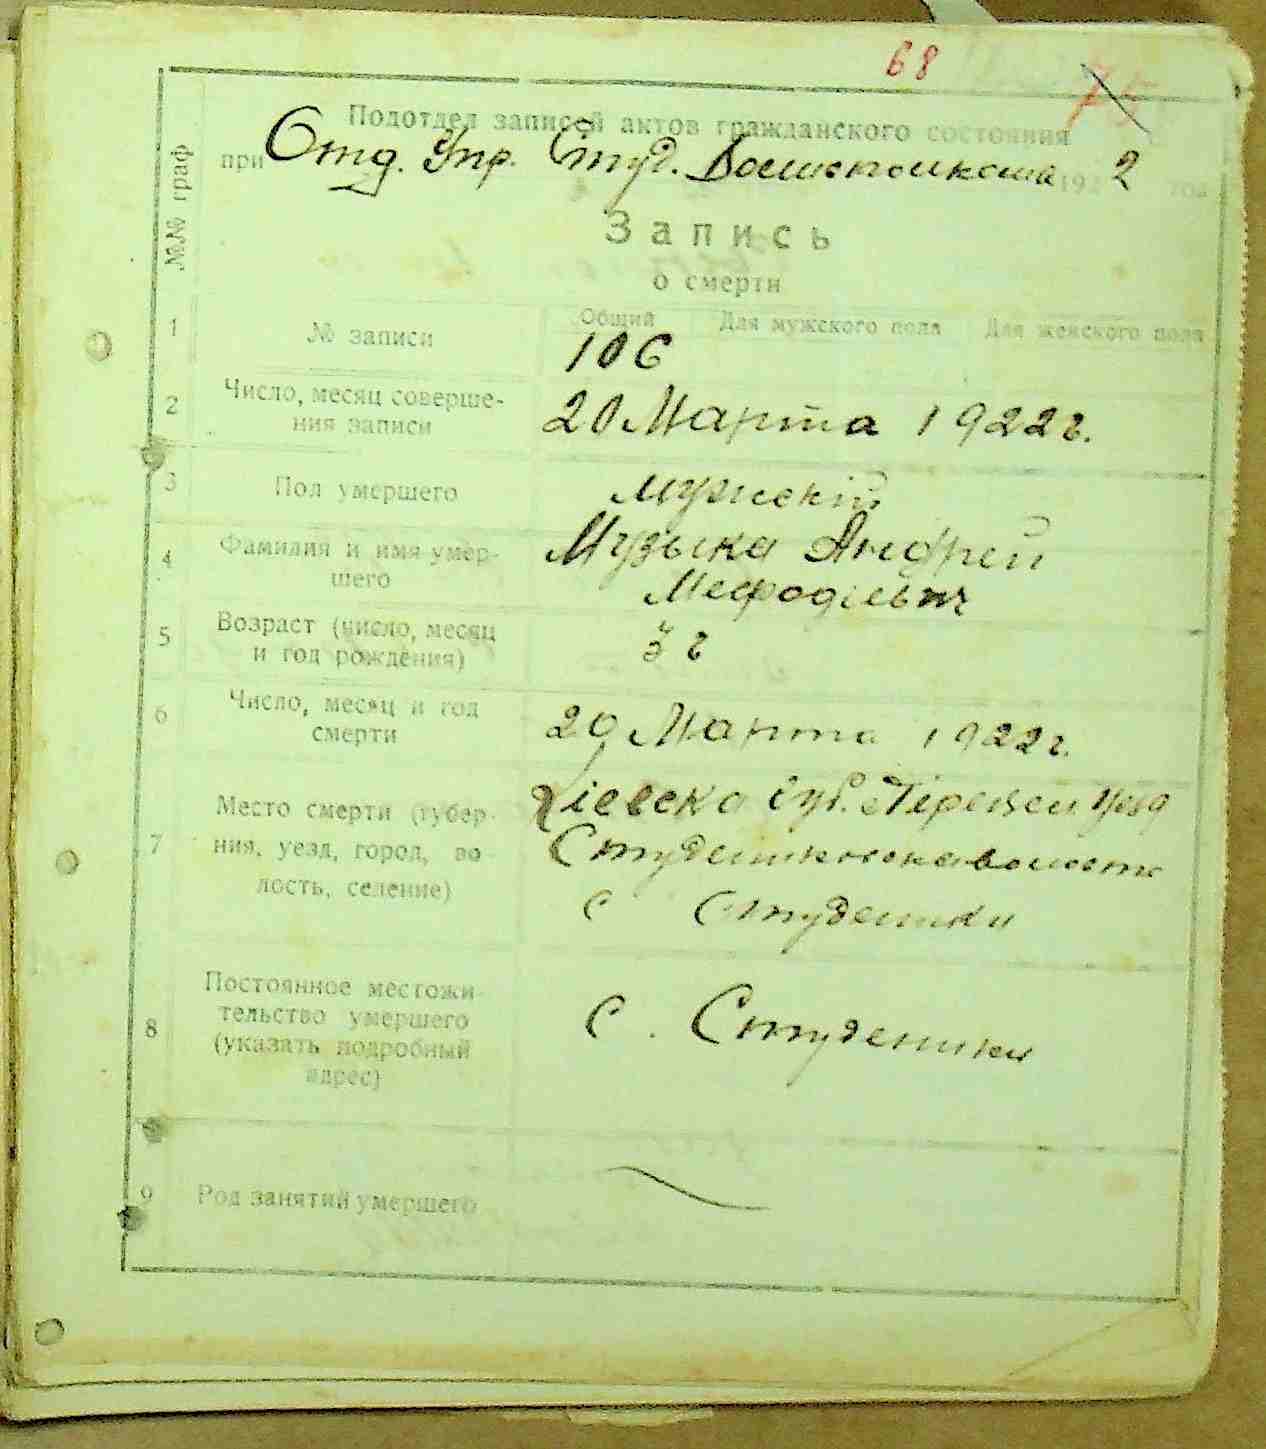 68 75
Подотдел записей актов гражданского состояния
при Отд. Упр. Студ. Волисполкома 192 2 год
№№ граф
Запись
о смерти
1 № записи Общий Для мужского пола Для женского пола
106
2 Число, месяц соверше-
ния записи
20 Марта 1922 г.
3 Пол умершего мужскій
4 Фамилия и имя умер-
шего
Музыка Андрей
Мефодіевич
5 Возраст (число, месяц
и год рождения)
3 г
6 Число, месяц и год
смерти
20 Марта 1922 г.
7 Место смерти (губер-
ния, уезд, город, во-
лость, селение)
Кіевска губ.
волость
с Студеники
8 Постоянное местожи-
тельство умершего
(указать подробный
адрес)
с. Студеники
9 Род занятий умершего